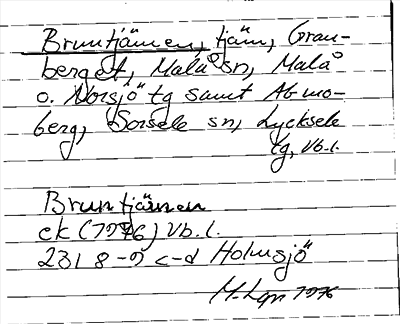 Bruntjärnen, tjärn, Gran-
berget, Malå sn, Malå
o. Norsjö tg samt Abmo-
berg, Sorsele sn, Lycksele
tg, Vb.l.
Bruntjärnen
ek (1976) Vb.l.
23I 8-9 c-d Holmsjö
M-Lgn 1976